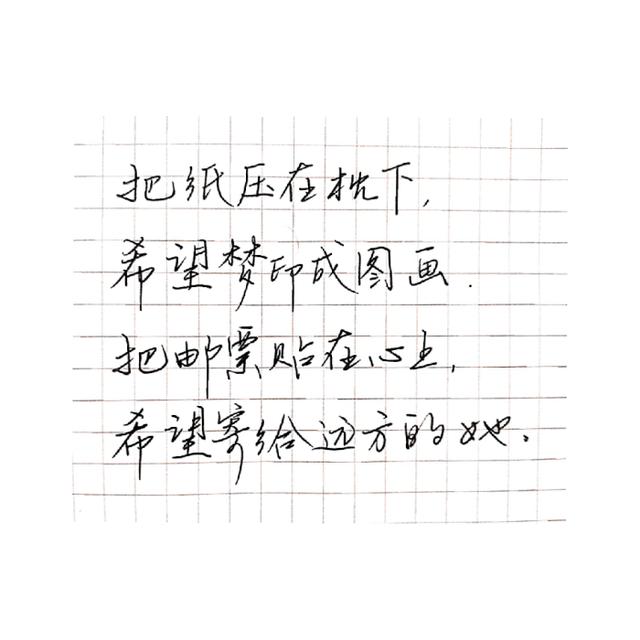 把纸压在枕下,
希望梦印成图画.
把邮票贴在心上,
希望寄给远方的她.